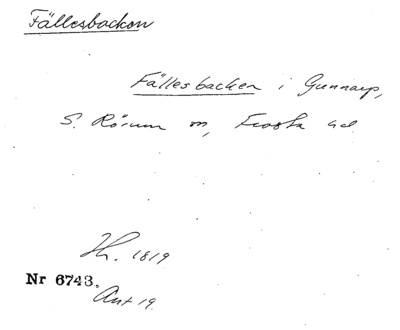 Fällesbacken
Fällesbacken i Gunnarp,
S. Rörum sn, Frosta hd
Th. 1819
Nr 6743.
Ant 19.